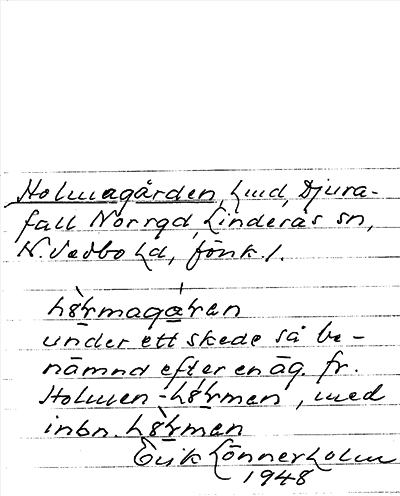 Holmagården, Lind, Djura-
fall Norrgd, Linderås sn,
N. Vedbo hd, Jönk. l.
hɷ̀ɽmagáren
under ett skede så be-
nämnd efter en äg. fr.
Holmen - hɷ̀ɽmen, med
inbn. hɷ̀ɽmen
Erik Lönnerholm
1948